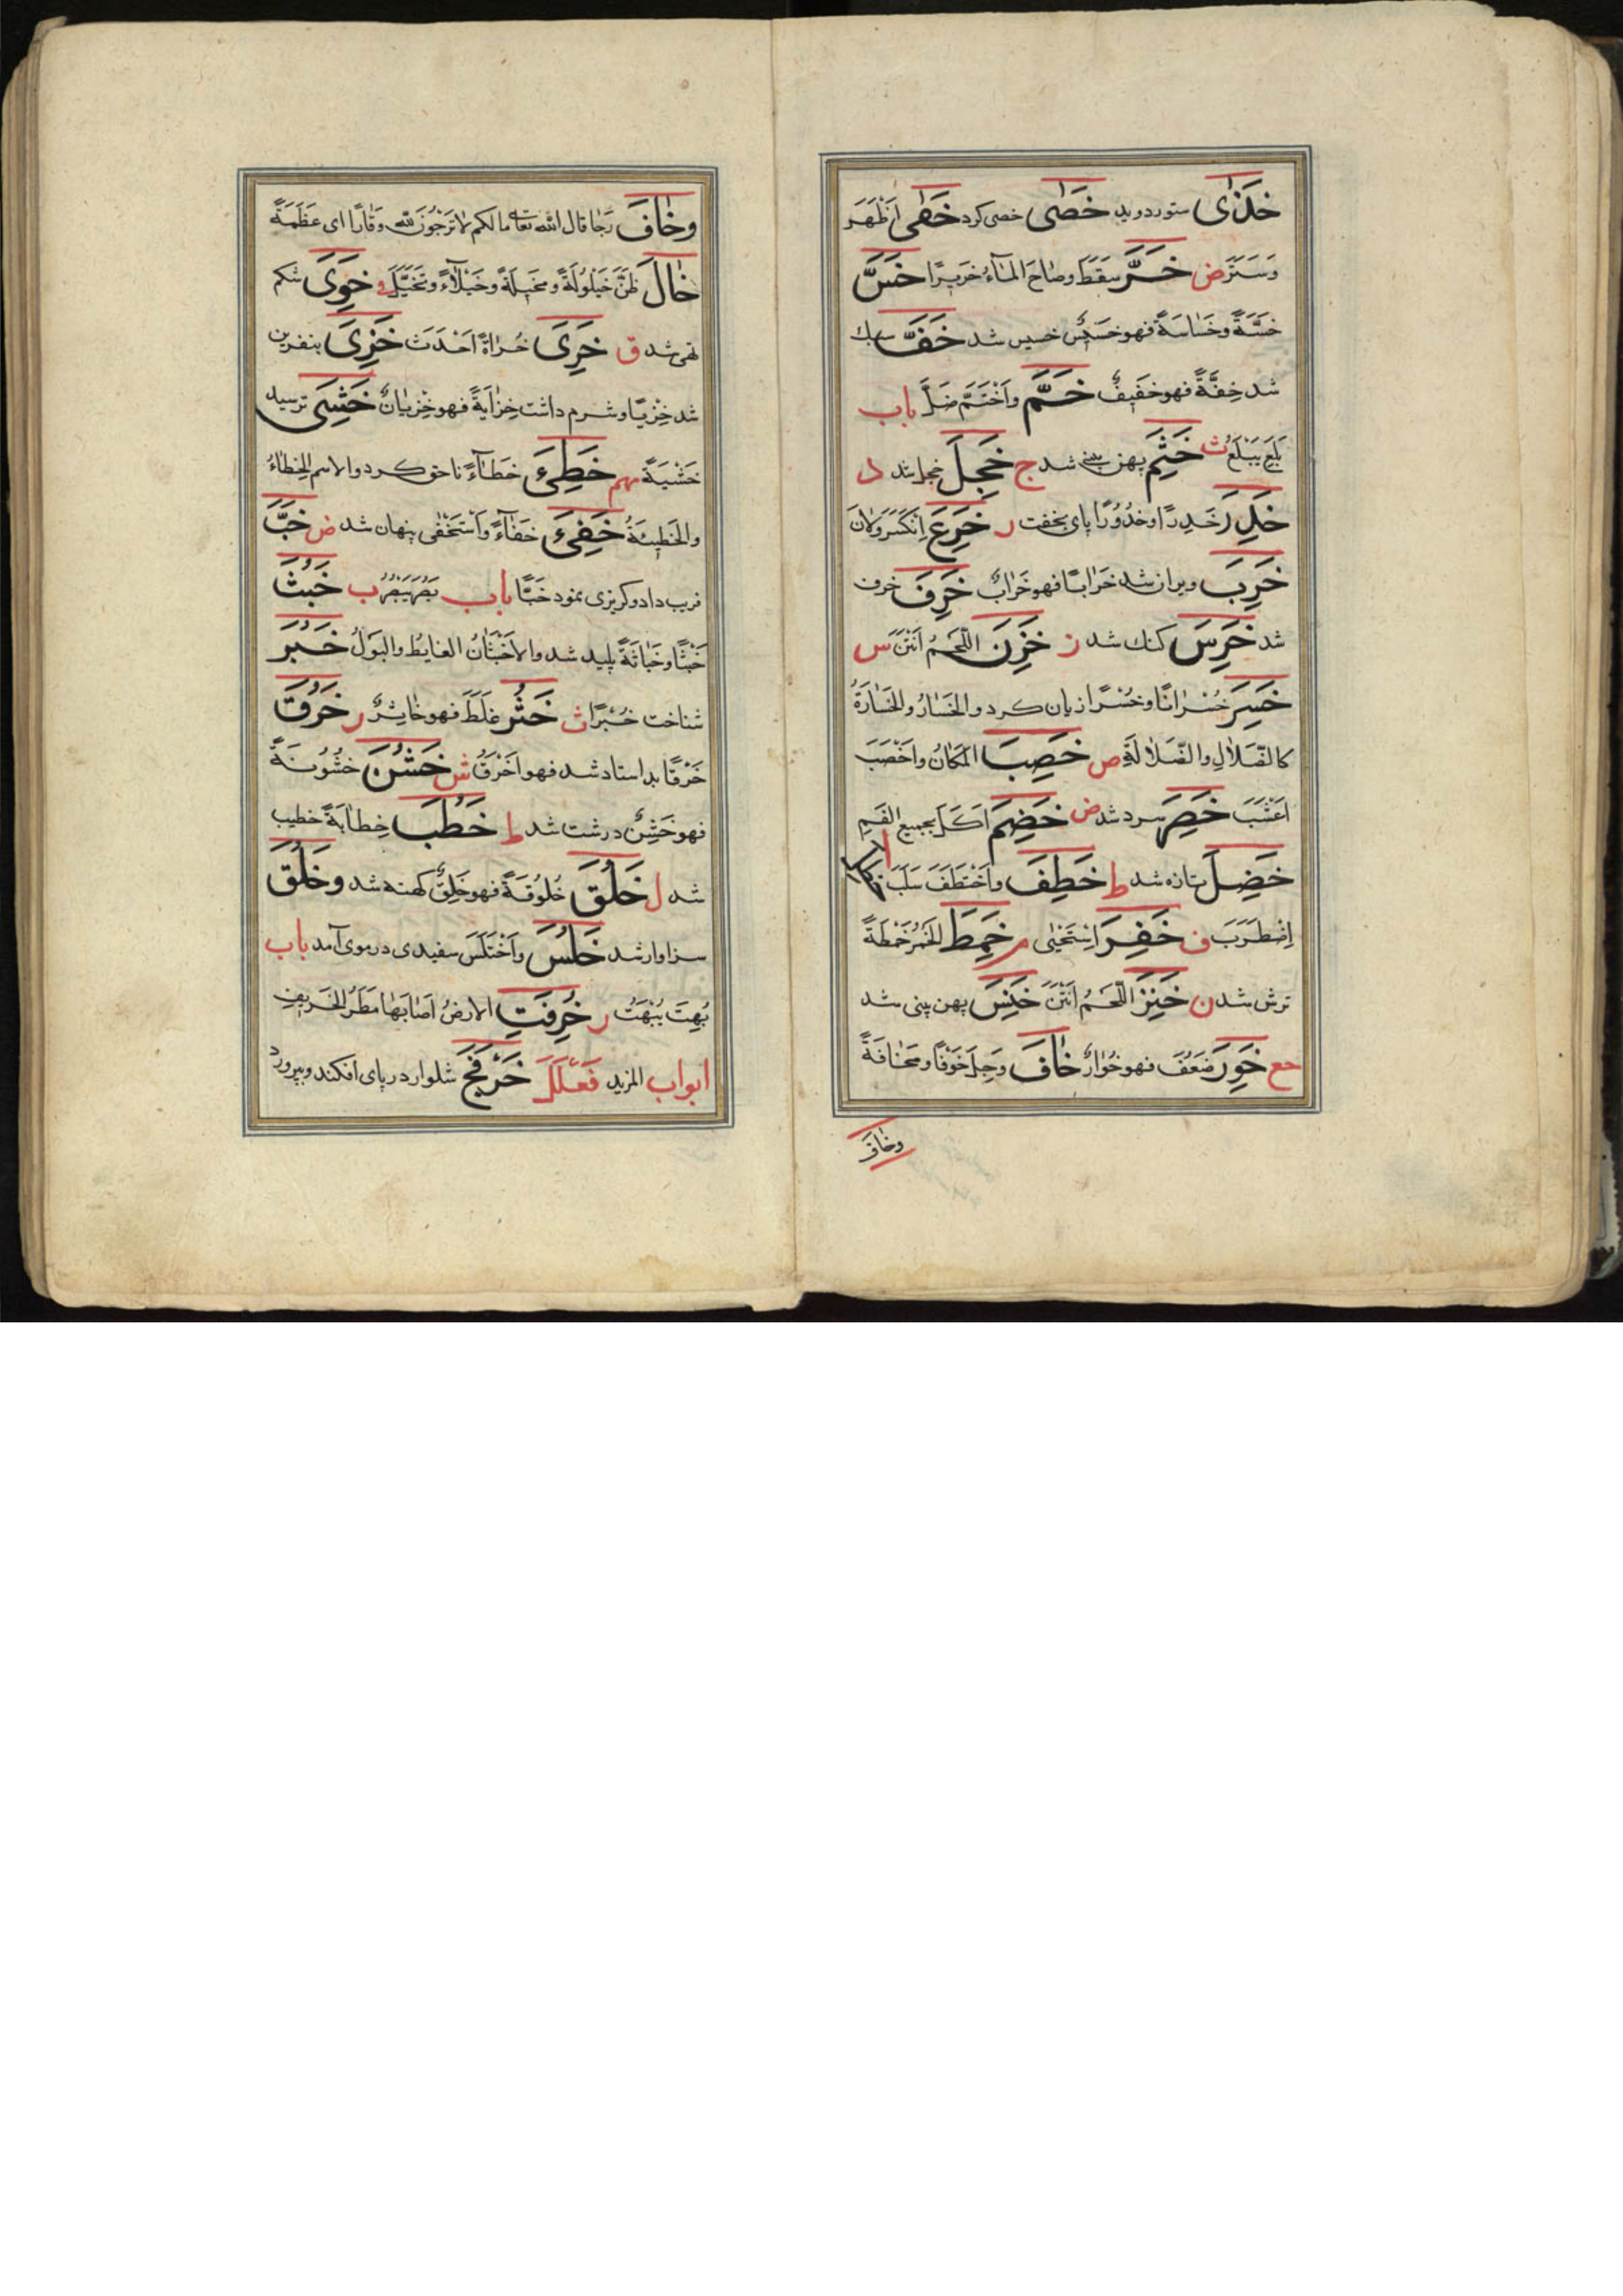 خَذٰى ستور دويد خَصٰى خصى كرد خَفٰى اَظْهَرَ
وَسَتَرَ ض خَرَّ سَقَطَ وصٰاحَ المٰآءُ خَرِيرًا خَسَّ
خِسَّةً وخَسٰاسَةً فهو خَسٖيسٌ خسيس شد خَفَّ سبك
شد خِفَّةً فهو خَفٖيفٌ خَمَّ وَاَخْتَمَّ ضَلَّ باب
بَلِعَ يَبْلَعُ ث خَثِمَ پهن بينى شد ج خَجِلَ خجل شد د
خَدِرَ خَدِرًا وخُدُورًا پاى بخفت ر خَرِعَ اِنْكَسَرَ ولٰانَ
خَرِبَ ويران شد خَرٰابًا فهو خَرٰابٌ خَرِفَ خرف
شد خَرِسَ كنك شد ز خَزِنَ اللَّحْمُ اَنْتَنَ س
خَسِرَ خُسْرٰانًا وخُسْرًا زيان كرد والخَسٰارُ والخَسٰارَةُ
كالضَّلاٰلِ والضَّلاٰلَةِ ص خَصِبَ المَكٰانُ واَخْصَبَ
اَعْشَبَ خَصِرَ سرد شد ض خَضِمَ اَكَلَ بجميع الفَمِ
خَضِلَ تازه شد ط خَطِفَ واَخْتَطَفَ سَلَبَ
اِضْطَرَبَ ف خَفِرَ اِسْتَحْيٰى م خَمِطَ الخَمْرُ خَمْطَةً
ترش شد ن خَنِزَ اللَّحْمُ اَنْتَنَ خَنِسَ پهن بينى شد
مع خَوِرَ ضَعُفَ فهو خُوٰارٌ خٰافَ وَجِلَ خَوْفًا ومَخٰافَةً
وخٰافَ
وخٰافَ رَجٰا قال الله تعا مالكم لا تَرْجُونَ للّه وَقٰارًا اى عَظَمَةً
خٰالَ ظَنَّ خَيْلُولَةً ومَخٖيلَةً وخَيْلاٰءً وتَخَيَّلَ و خَوِىَ شكم
تهى شد ق خَرِىَ خُرٰاةً اَحْدَثَ خَزِىَ بنفرين
شد خِزْيًا وشرم داشت خِزٰايَةً فهو خِزْيٰانٌ خَشِىَ ترسيد
خَشْيَةً مهم خَطِئَ خَطٰآءً ناحق كرد والاسم الخِطٰاءُ
والخَطٖيئَةُ خَفِىَ خَفٰآءً وَاَسْتَخْفٰى پنهان شد ض خَبَّ
فريب داد وكربزى نمود خَبًّا باب بَصُرَ يَبْصُرُ ب خَبُثَ
خُبْثًا وخَبٰاثَةً پليد شد والاَخْبَثٰانُ الغٰايِطُ والبَوْلُ خَبُرَ
شناخت خُبْرًا ث خَثُرَ غَلَظَ فهو خٰاثِرٌ ر خَرُقَ
خَرْقًا بد استاد شد فهو اَخْرَقُ ش خَشُنَ خُشُونَةً
فهو خَشِنٌ درشت شد ط خَطُبَ خِطٰابَةً خطيب
شد ل خَلُقَ خُلُوقَةً فهو خَلِقٌ كهنه شد وخَلُقَ
سزاوار شد خَلُسَ واَخْتَلَسَ سفيدى در موى آمد باب
بُهِتَ يُبْهَتُ ر خُرِفَتِ الارضُ اَصٰابَهٰا مَطَرُ الخَرٖيفِ
ابواب المزيد فَعْلَلَ خَرْفَجَ شلوار در پاى افكند وبپرورد